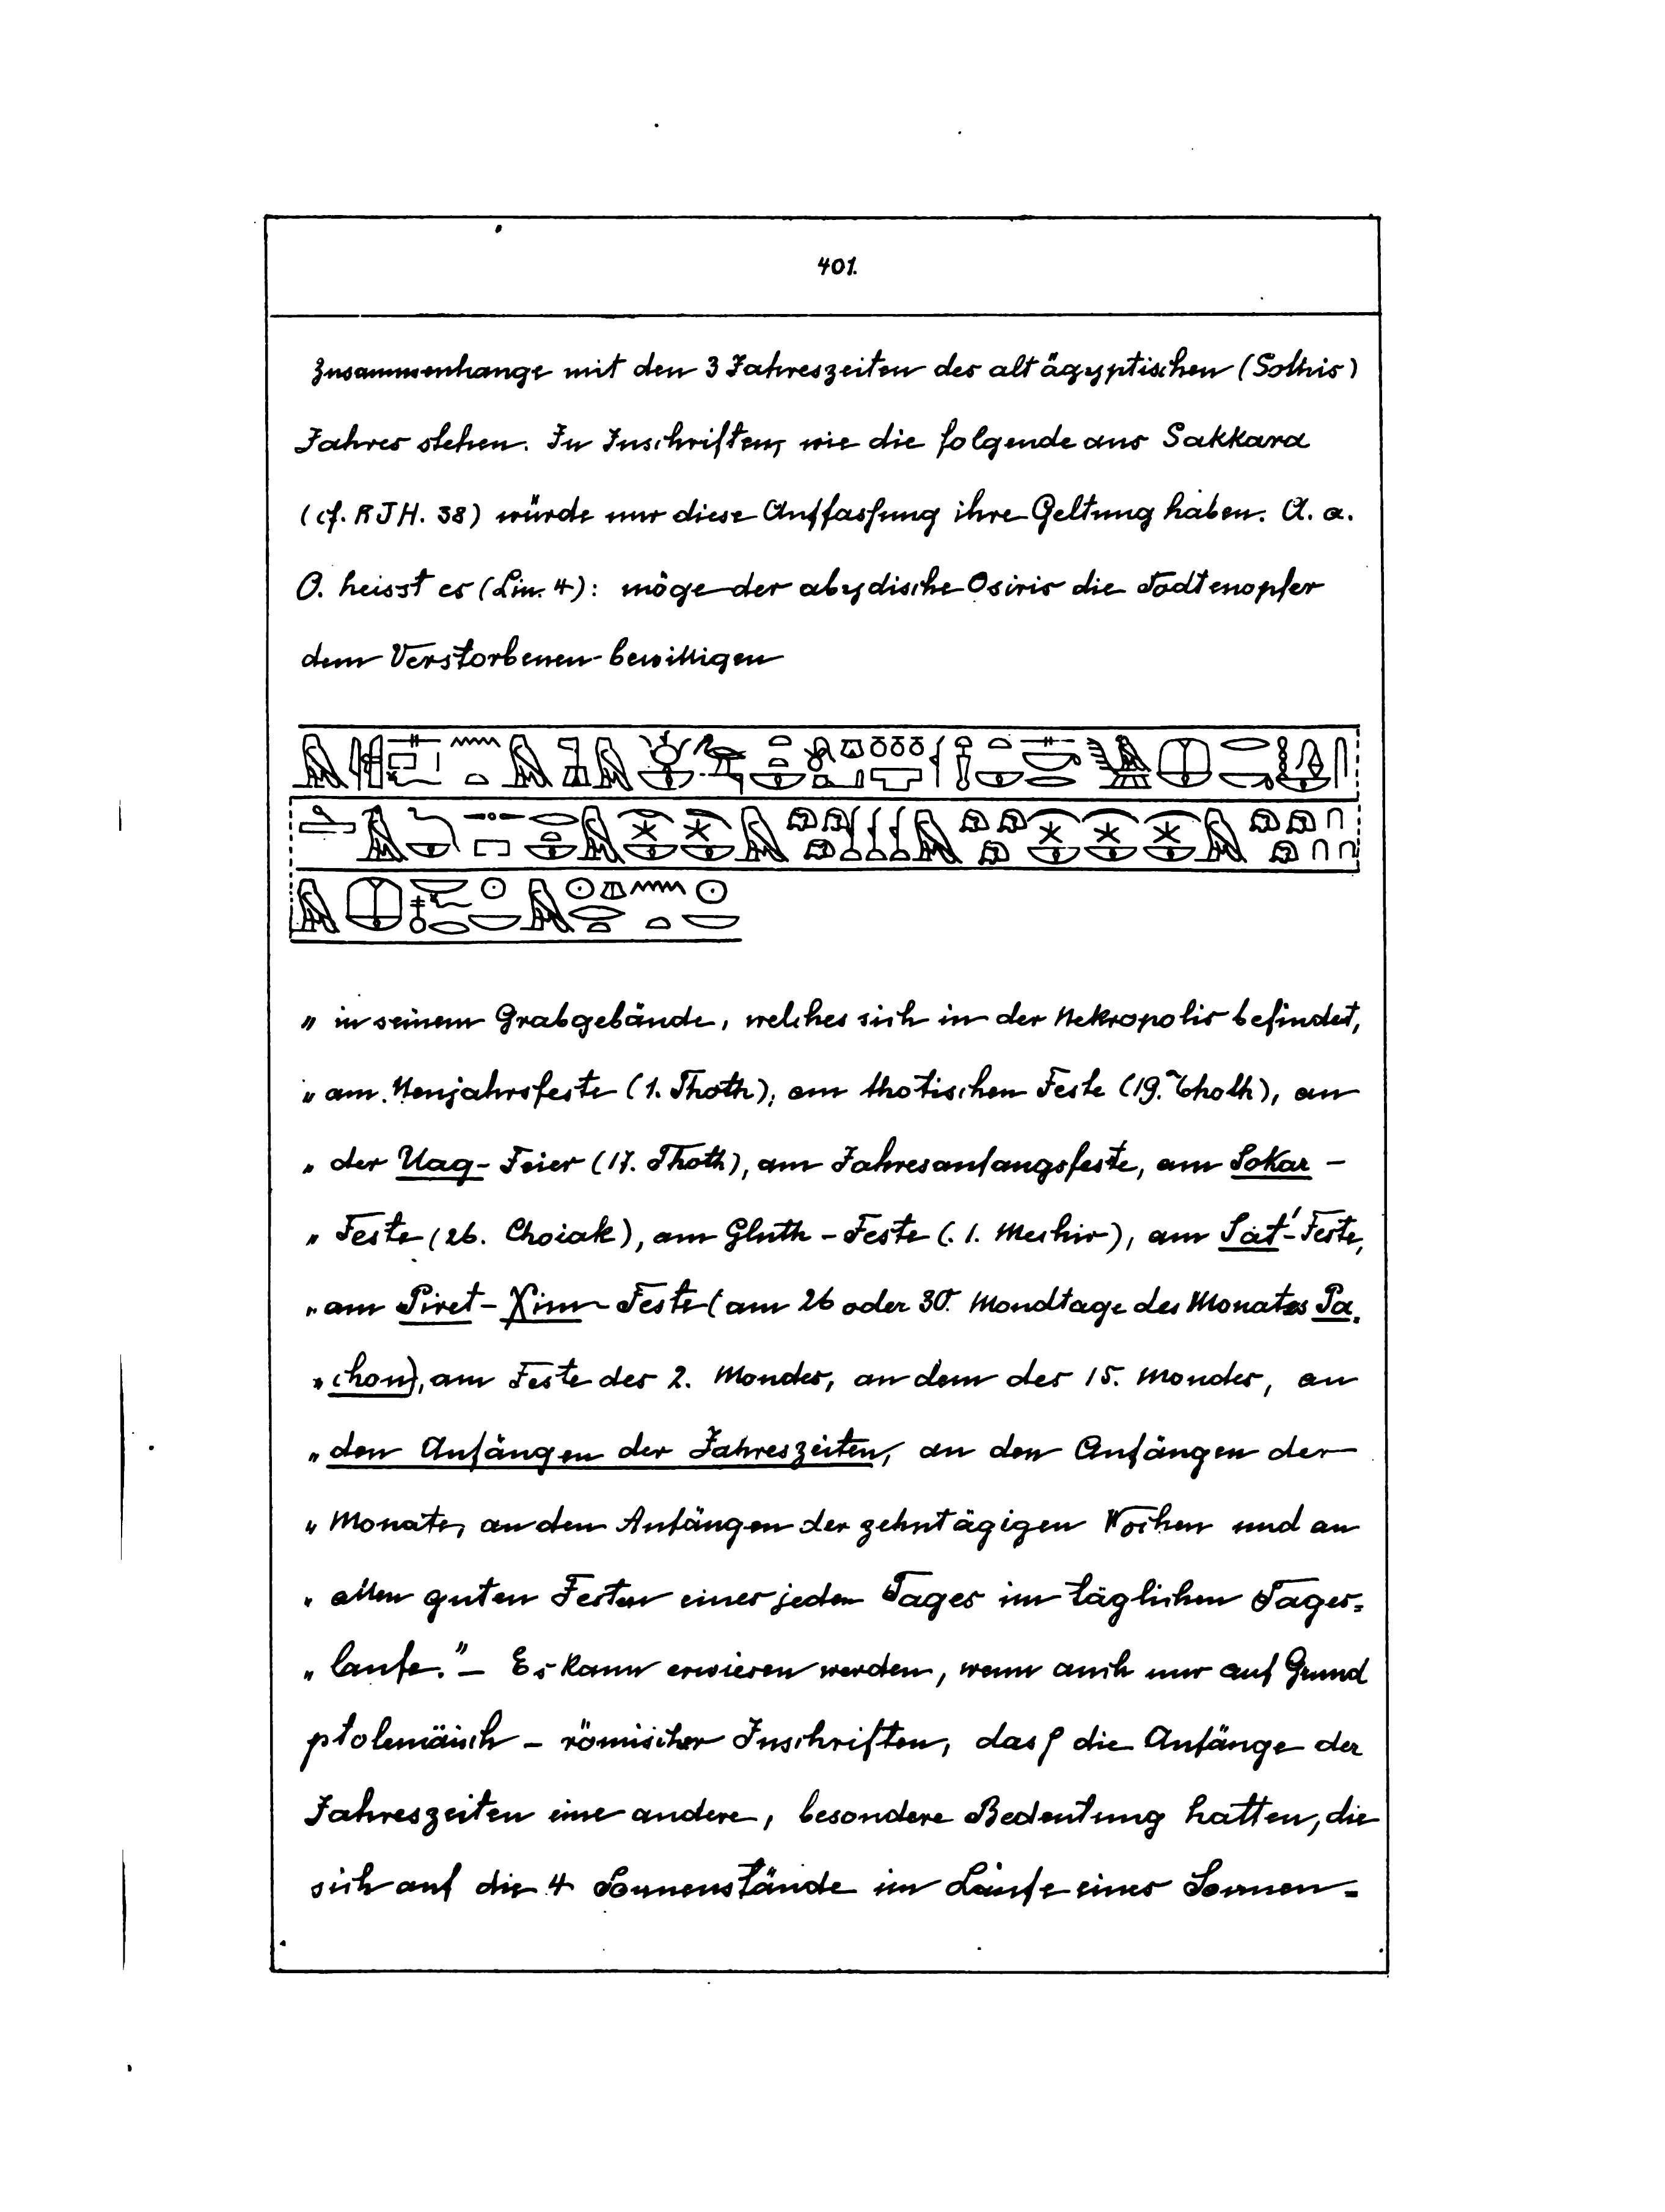 401.
Zusammenhange mit den 3 Jahreszeiten des altägyptischen (Sothis)
Jahres stehen. In Inschriften, wie die folgende aus Sakkara
(cf. RJH. 38) würde nur diese Auffassung ihre Geltung haben. A. a.
O. heisst es (Lin. 4): möge der abydische Osiris die Todtenopfer
dem Verstorbenen bewilligen
„ in seinem Grabgebäude, welches sich in der Nekropolis befindet,
„ am Neujahrsfeste (1. Thoth), am thotischen Feste (19. Thoth), an
„ der Uag-Feier (17. Thoth), am Jahresanfangsfeste, am Sokar-
„ Feste (26. Choiak), am Gluth-Feste (1. Mechir), am Sat'-Feste,
„ am Piret-Xim-Feste (am 26 oder 30. Mondtage des Monates Pa-
„ chon), am Feste des 2. Mondes, an dem des 15. Mondes, an
„ den Anfängen der Jahreszeiten, an den Anfängen der
„ Monate, an den Anfängen der zehntägigen Wochen und an
„ allen guten Festen eines jeden Tages im täglichen Tages-
„ laufe." – Es kann erwiesen werden, wenn auch nur auf Grund
ptolemäisch-römischer Inschriften, daß die Anfänge der
Jahreszeiten eine andere, besondere Bedeutung hatten, die
sich auf die 4 Sonnenstände im Laufe eines Sonnen-